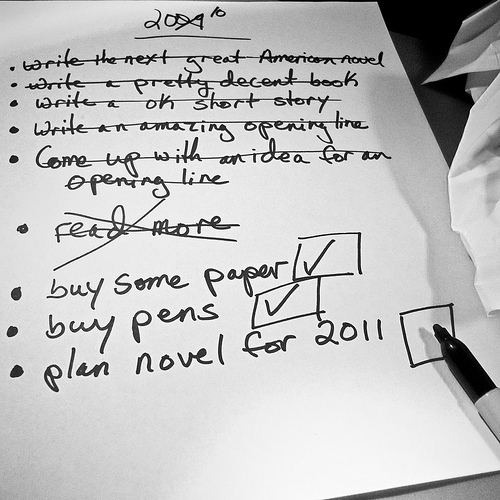 2009 10
• write the next great American novel
• write a pretty decent book
• write a ok short story
• write an amazing opening line
• Come up with an idea for an
opening line
• read more
• buy some paper ✓
• buy pens ✓
• plan novel for 2011